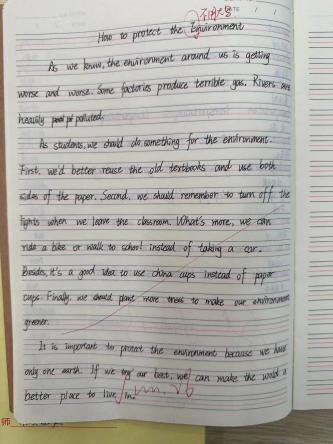 不用大写
DATE
How to protect the Environment
As we know, the environment around us is getting
worse and worse. Some factories produce terrible gas. Rivers are
heavily polluted.
As students, we should do something for the environment.
First, we'd better reuse the old textbooks and use both
sides of the paper. Second, we should remember to turn off the
lights when we leave the classroom. What's more, we can
ride a bike or walk to school instead of taking a car.
Besides, it's a good idea to use china cups instead of paper
cups. Finally, we should plant more trees to make our environment
greener.
It is important to protect the environment because we have
only one earth. If we try our best, we can make the world a
better place to live in.
师